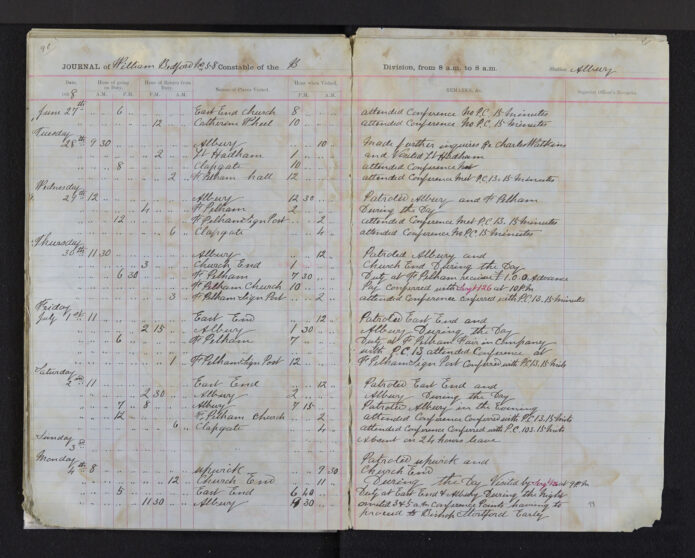 96
JOURNAL of William Bedford PC 58 Constable of the B
Date. 1898 Hour of going on Duty. Hour of Return from Duty. Names of Places Visited. Hour when Visited.
A.M. P.M. P.M. A.M. P.M. A.M.
June 27th 6 East End Church 8
12 Catherine Wheel 10
Tuesday
28th 9 30 Albury 10
2 Lt Hadham 1
8 Clapgate 10
2 Pelham hall 12
Wednesday
29th 12 Albury 12 30
4 F Pelham 2
12 F Pelham Sign Post 2
6 Clapgate 4
Thursday
30th 11 30 Albury 12
3 Church End 1
6 30 F Pelham 7 30
F Pelham Church 10
3 F Pelham Sign Post 2
Friday
July 1st 11 East End 12
2 15 Albury 1 30
6 F Pelham 7
1 F Pelham Sign Post 12
Saturday
2nd 11 East End 12
2 30 Albury 2
7 8 Albury 7 15
12 F. Pelham Church 2
6 Clapgate 4
Sunday
3rd
Monday
4th 8 upwick 9 30
12 Church End 11
5 East End 6 40
11 30 Albury 30
Division, from 8 a.m. to 8 a.m. Station Albury
REMARKS, &c. Superior Officer's Remarks.
attended Conference No P.C. 15 minutes
attended Conference No P.C. 15 minutes
Made further inquires Re Charles Watkins
and Visited Lt Hadham
attended Conference
attended Conference Met P.C. 13. 15 minutes
Patroled Albury and F Pelham
During the Day
attended Conference Met P.C. 13. 15 minutes
attended Conference No P.C. 15 minutes
Patroled Albury and
Church End During the Day
Duty at F Pelham Advance
Pay Conferred with 126 at 10 P.M
attended Conference Conferred with P.C. 13. 15 minutes
Patroled East End and
Albury During the Day
Duty at F Pelham Fair in Company
with P.C. 13 attended Conference at
F Pelham Sign Post Conferred with P.C. 13. 15 Mints
Patroled East End and
Albury During the Day
Patroled Albury in the Evening
attended Conference Conferred with P.C. 13. 15 Mints
attended Conference Conferred with P.C. 103. 15 Mints
Absent on 24 hours leave
Patroled upwick and
Church End
During the Day Visited by at 9 P.M
Duty at East End & Albury During the Night
omited 3 & 5 a.m Conference Points having to
proceed to Bishop Stortford Early